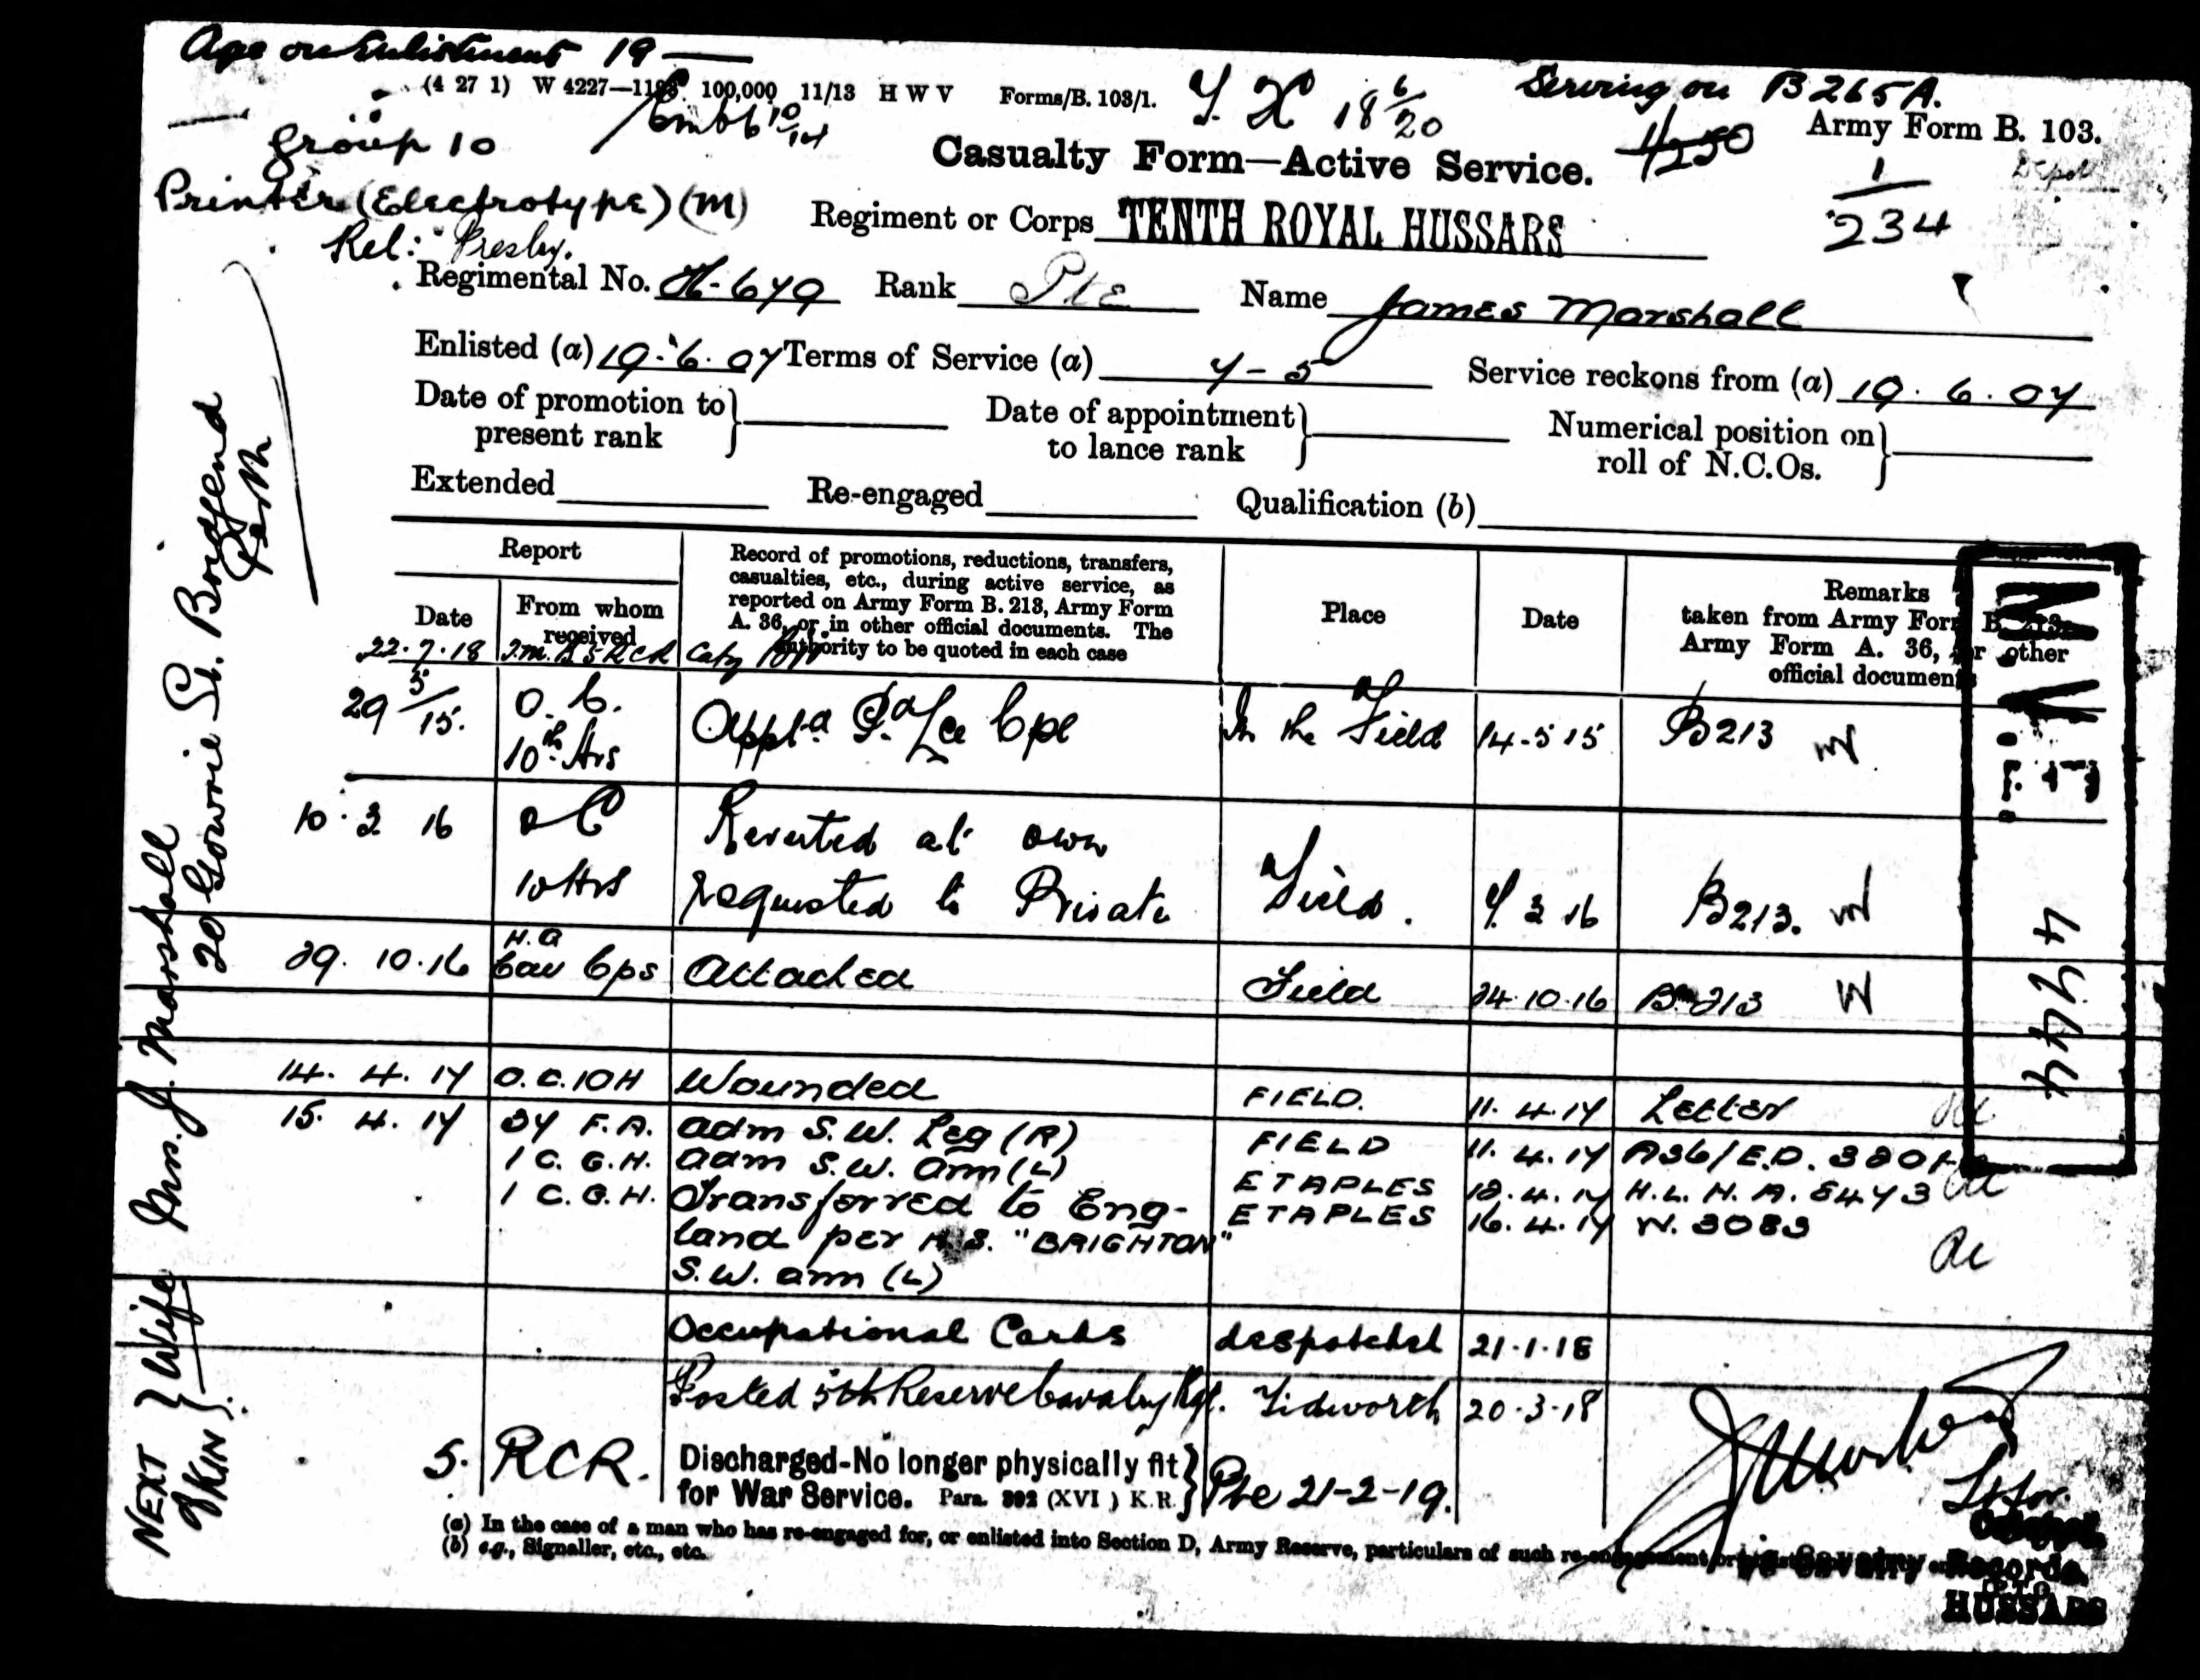 Age on Enlistment 19 —
(4 27 1) W 4227— 100,000 11/13 H W V Forms/B. 103/1.
Serving on B265A.
18 6/20
Army Form B. 103.
Group 10
Casualty Form—Active Service.
1/234
Printer (Electrotype) (M)
Regiment or Corps TENTH ROYAL HUSSARS
Rel: Presby.
Regimental No. H-679 Rank Pte Name James Marshall
Enlisted (a) 19.6.07 Terms of Service (a) 7-5 Service reckons from (a) 19.6.07
Date of promotion to present rank } Date of appointment to lance rank } Numerical position on roll of N.C.Os. }
Extended Re-engaged Qualification (b)
Report
Date
From whom received
Record of promotions, reductions, transfers, casualties, etc., during active service, as reported on Army Form B. 213, Army Form A. 36, or in other official documents. The authority to be quoted in each case
Place
Date
Remarks taken from Army Form B. 213, Army Form A. 36, or other official documents
22.7.18 5 RCR
29 5/15. O.C. 10th Hrs Appt.d P. a/Lce Cpl In the Field 14-5 15 B213
10.3 16 OC 10 Hrs Reverted at own requested to Private Field. 7.3 16 B213.
29.10.16 H.Q Cav Cps Attached Field 24.10.16 B 213
14.4.17 O.C. 10 H Wounded FIELD. 11.4.17 Letter
15.4.17 34 F.A. adm S.W. Leg (R) FIELD 11.4.17 A36/E.D.
1 C.G.H. adm S.W. arm (L) ETAPLES 12.4.17 H.L. H.A. 5473
1 C.G.H. Transferred to Eng- ETAPLES 16.4.17 W. 3083
land per H.S. "BRIGHTON"
S.W. arm (L)
Occupational Cards despatched 21.1.18
Posted 5th Reserve Cavalry Rgt. Tidworth 20.3.18
5. RCR. Discharged-No longer physically fit for War Service. Para. 392 (XVI) K.R. } Pte 21-2-19.
(a) In the case of a man who has re-engaged for, or enlisted into Section D, Army Reserve, particulars of such re-engagement or
(b) e.g., Signaller, etc., etc.
Cavalry Records.
HUSSARS
NEXT OF KIN } Wife Mrs. J. Marshall
20 Gowrie St. Bridgend
Perth